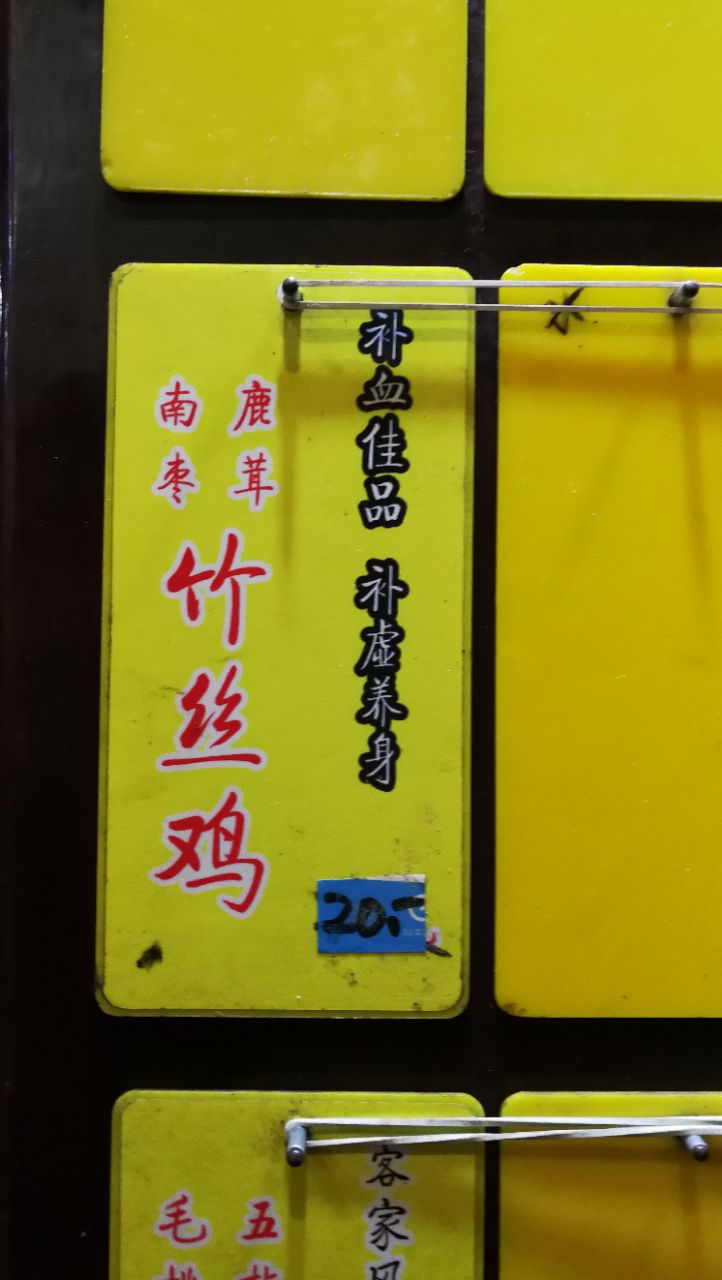 补血佳品 补虚养身
鹿茸
南枣
竹丝鸡
20.-
客家风
五
毛